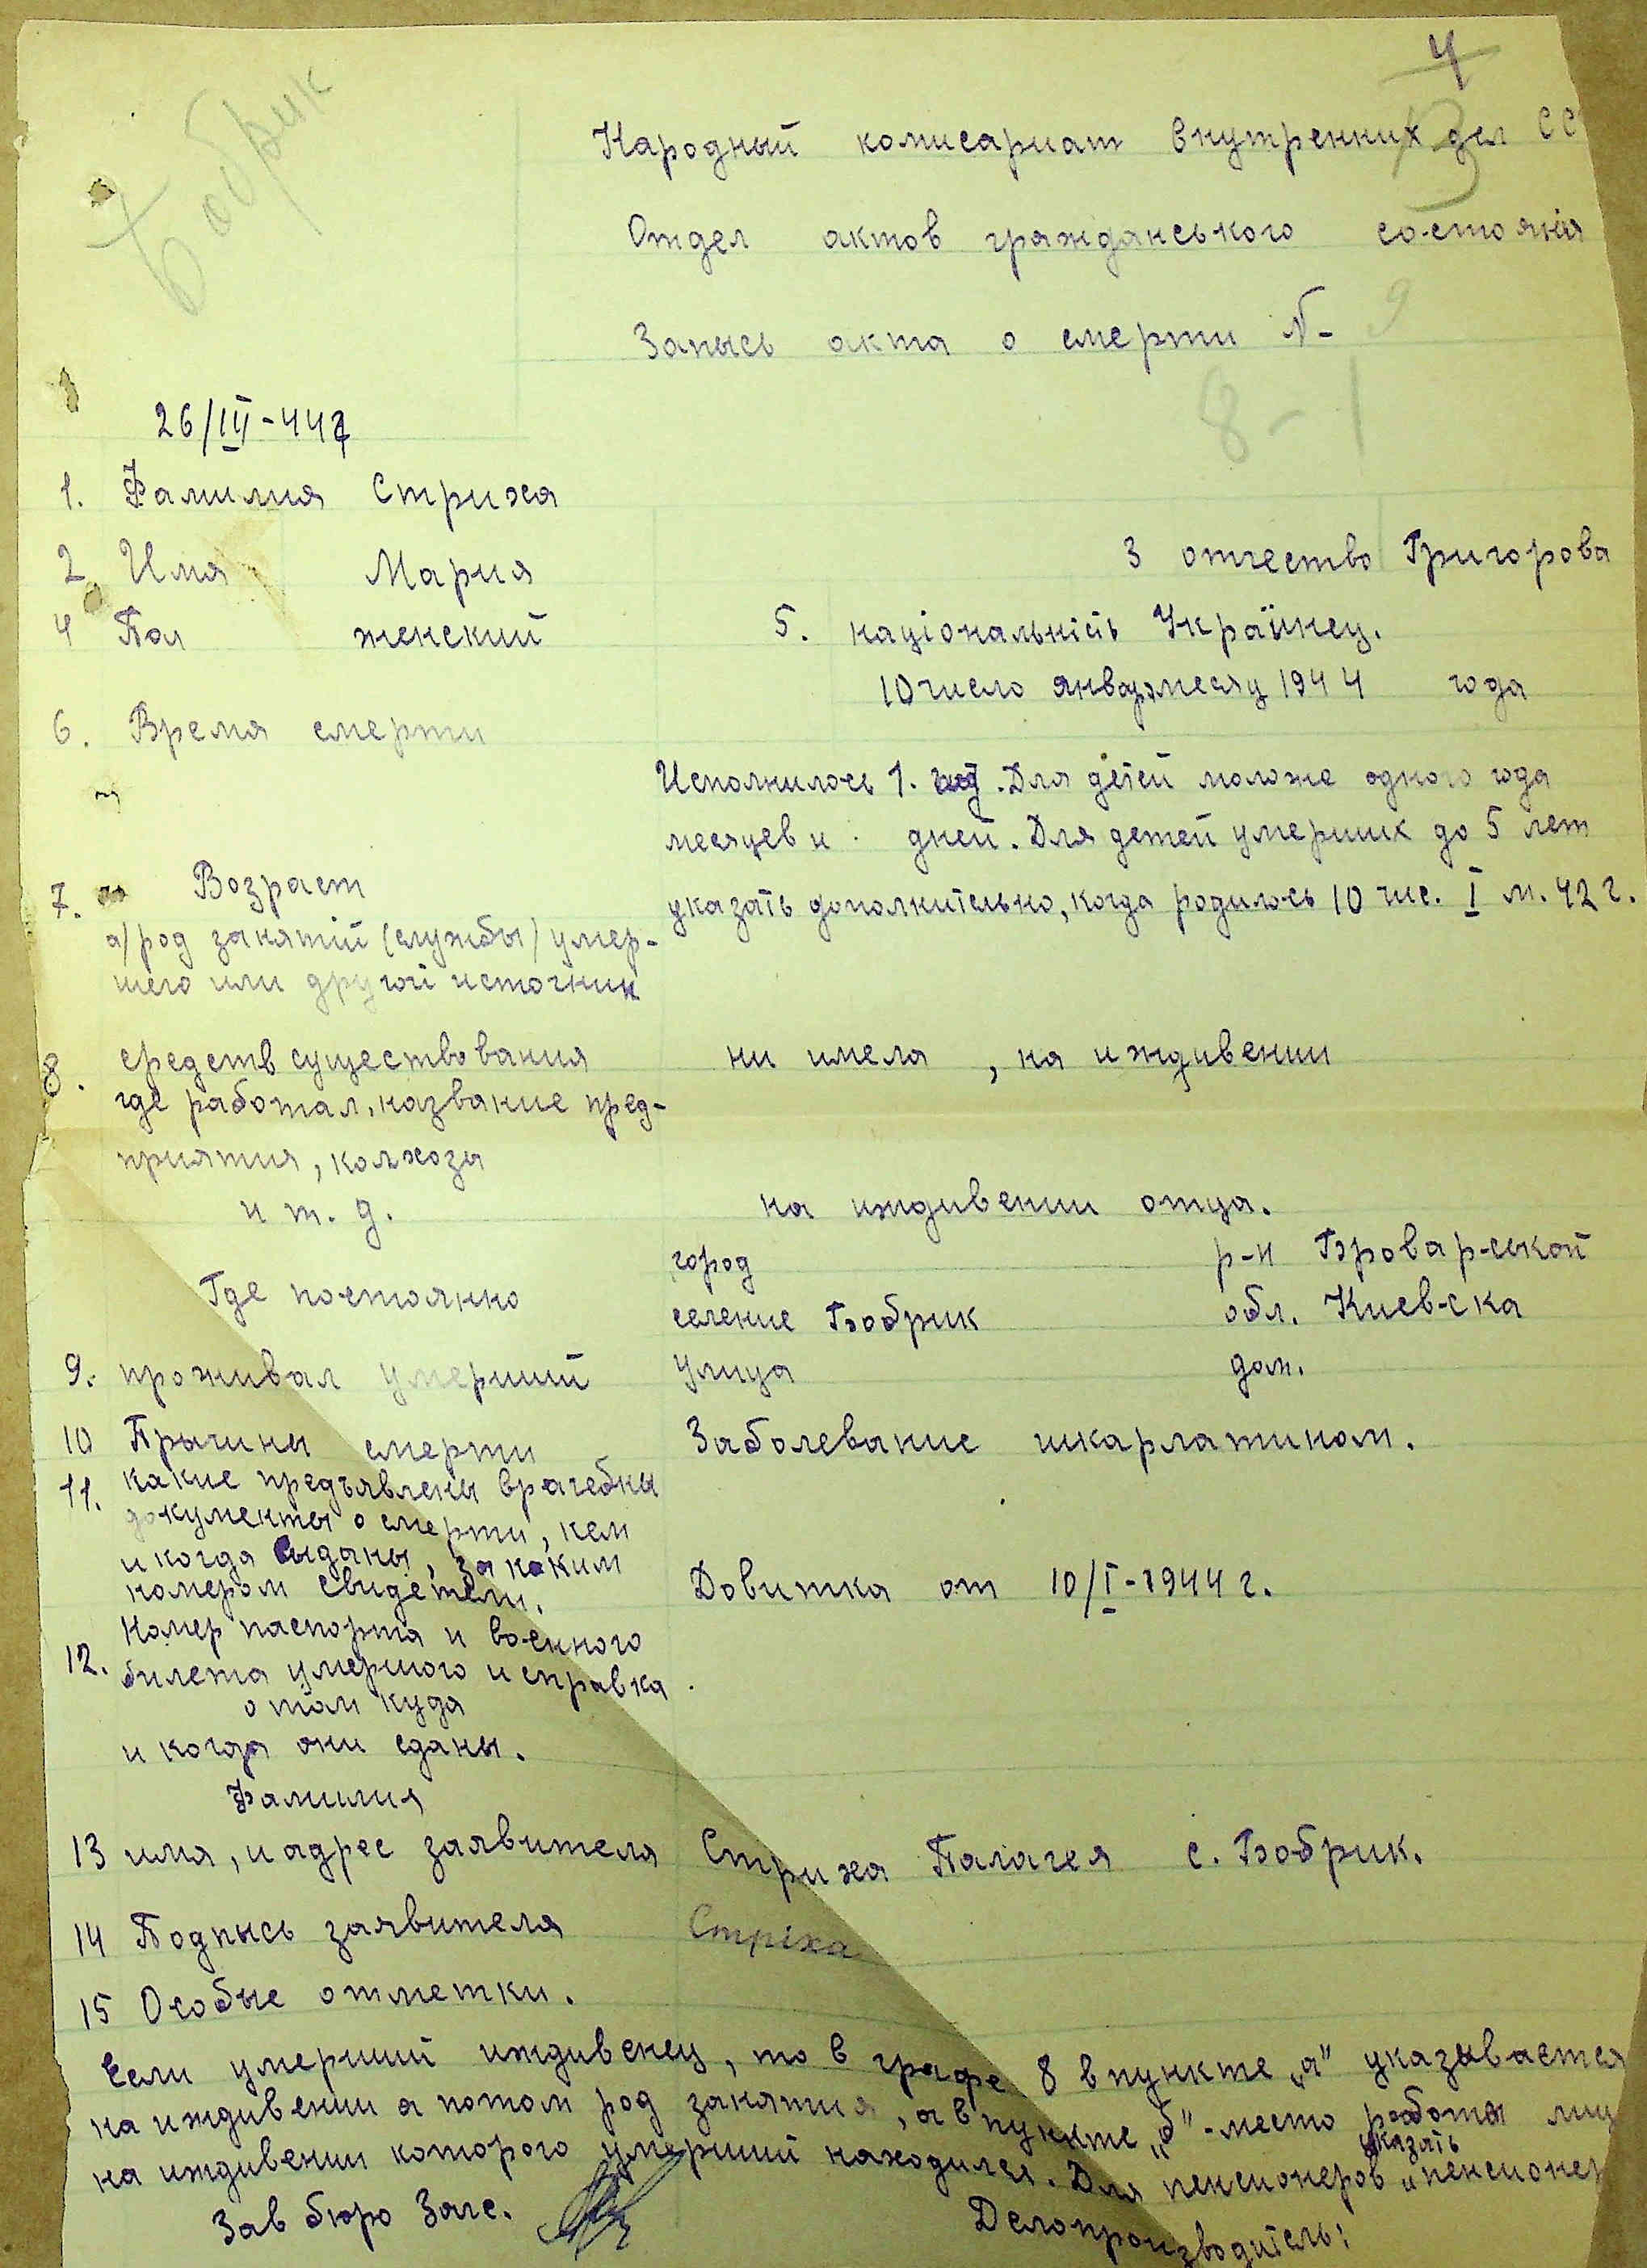 4
3
Бобрик
Народный комисариат внутренних дел СС
Отдел актов гражданського состояния
Запысь акта о смерти №- 9
8-1
26/III-44г
1. Фамилия Стриха
2 Имя Мария 3 отчество Григорова
4 Пол женский 5. національність Українец.
6. Время смерти 10 число январ месяц 1944 года
Исполнилось 1. год. Для детей моложе одного года
месяцев и дней. Для детей умерших до 5 лет
7. Возраст указать дополнительно, когда родилось 10 чис. I м. 42 г.
а/род занятий (службы) умер-
шего или другой источник
8. средств существования ни имела, на иждивении
где работал, название пред-
приятия, колхоза
и т. д. на иждивении отца.
город р-н Броварськой
Где постоянно селение Бобрик обл. Киевска
9. проживал умерший улица дом.
10 Прычины смерти Заболевание шкарлатином.
11. какие предъявлены врачебны
документы о смерти, кем
и когда выданы, за каким
номером свидетели. Довитка от 10/I-1944 г.
Номер паспорта и военного
12. билета умершого и справка
о том куда
и когда они сданы.
Фамилия
13 имя, и адрес заявителя Стриха Палагея с. Бобрик.
14 Подпысь заявителя Стріха
15 Особые отметки.
Если умерший иждивенец, то в графе 8 в пункте „а" указывается
на иждивении а потом род занятия, а в пункте „б"-место работы лиц
на иждивении которого умерший находился. Для пенсионеров указать „пенсионер
Зав бюро Загс. Делопроизводитель: